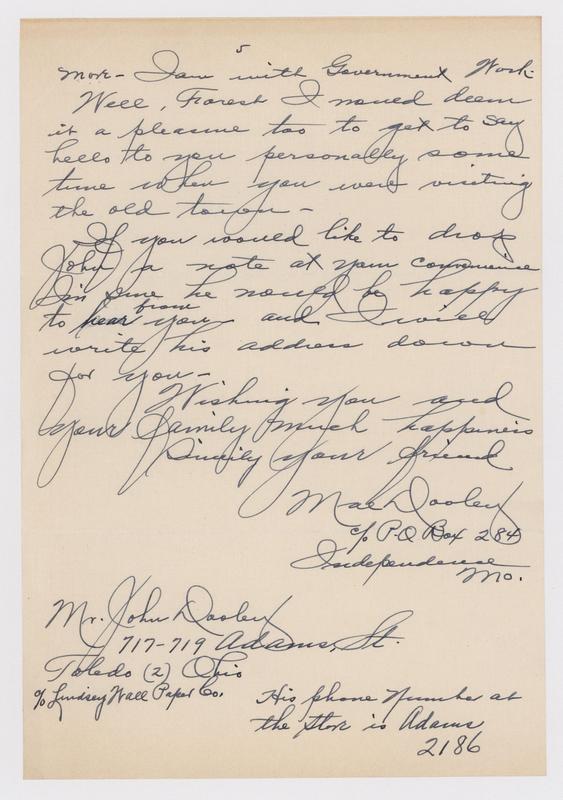 5
more - I am with Government Work -
Well, Forest I would deem
it a pleasure too to get to say
hello to you personally some
time when you were visiting
the old town -
If you would like to drop
John a note at your convenience
I'm sure he would be happy
to hear from you and I will
write his address down
for you -
Wishing you and
your family much happiness
your friend
Mae Dooley
c/o P.O Box 284
Independence
Mo.
Mr. John Dooley
717-719 Adams, St.
Toledo (2) Ohio
c/o Lindsey Wall Paper Co.
His phone number at
the store is Adams
2186